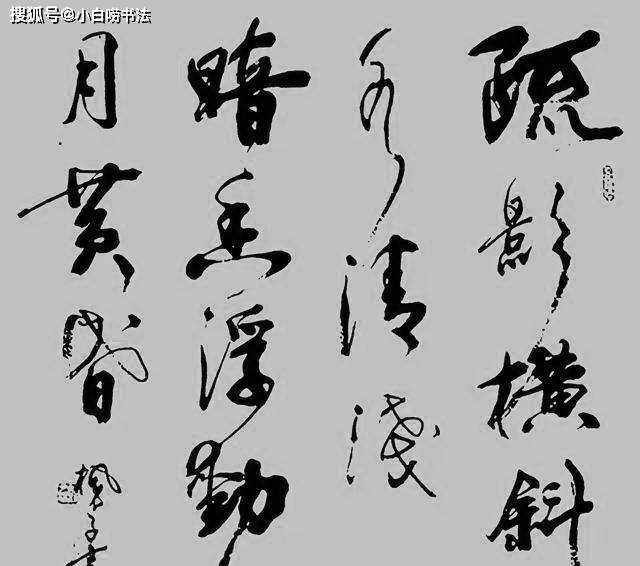 搜狐号@小白唠书法
疏影横斜
水清淺
暗香浮動
月黄昏